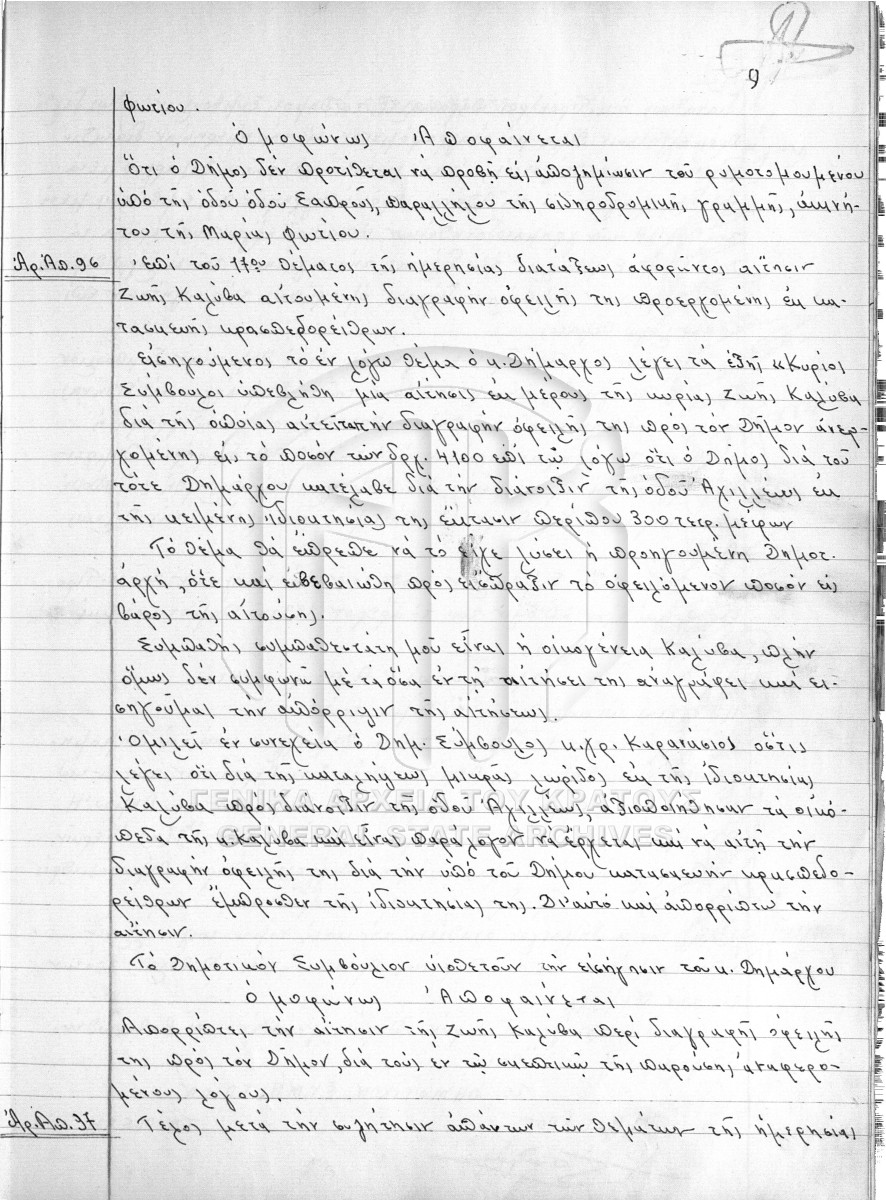 9
Φωτίου.
Ὁμοφώνως Ἀποφαίνεται
Ὅτι ὁ Δῆμος δέν προτίθεται νά προβῇ εἰς ἀποζημίωσιν τοῦ ρυμοτομουμένου
ὑπό τῆς ὁδοῦ ὁδοῦ Σαπφοῦς, παραλλήλου τῆς σιδηροδρομικῆς γραμμῆς, ἀκινή-
του τῆς Μαρίας Φωτίου.
Ἀρ. Ἀπ. 96
Ἐπί τοῦ 17ου θέματος τῆς ἡμερησίας διατάξεως ἀφορῶντος αἴτησιν
Ζωῆς Καλύβα αἰτουμένης διαγραφήν ὀφειλῆς της προερχομένης ἐκ κα-
τασκευῆς κρασπεδορείθρων.
Εἰσηγούμενος τό ἐν λόγω θέμα ὁ κ. Δήμαρχος λέγει τά ἑξῆς «Κύριοι
Σύμβουλοι ὑπεβλήθη μία αἴτησις ἐκ μέρους τῆς κυρίας Ζωῆς Καλύβα
διά τῆς ὁποίας αἰτεῖται τήν διαγραφήν ὀφειλῆς της πρός τόν Δῆμον ἀνερ-
χομένης εἰς τό ποσόν τῶν δρχ. 4100 ἐπί τῷ λόγω ὅτι ὁ Δῆμος διά τοῦ
τότε Δημάρχου κατέλαβε διά τήν διάνοιξιν τῆς ὁδοῦ Ἀχιλλέως ἐκ
τῆς κειμένης ἰδιοκτησίας της ἔκτασιν περίπου 300 τετρ. μέτρων
Τό θέμα θά ἔπρεπε νά τό εἶχε λύσει ἡ προηγουμένη Δημοτ.
ἀρχή, ὅτε καί ἐβεβαιώθη πρός εἴσπραξιν τό ὀφειλόμενον ποσόν εἰς
βάρος τῆς αἰτούσης.
Συμπαθής συμπαθεστάτη μοῦ εἶναι ἡ οἰκογένεια Καλύβα, πλήν
ὅμως δέν συμφωνῶ μέ τά ὅσα ἐν τῇ αἰτήσει της ἀναγράφει καί εἰ-
σηγοῦμαι τήν ἀπόρριψιν τῆς αἰτήσεως.
Ὁμιλεῖ ἐν συνεχεία ὁ Δημ. Σύμβουλος κ. Χρ. Καρανάσιος ὅστις
λέγει ὅτι διά τῆς καταλήψεως μικρᾶς λωρίδος ἐκ τῆς ἰδιοκτησίας
Καλύβα πρός διάνοιξιν τῆς ὁδοῦ Ἀχιλλέως, ἀξιοποιήθησαν τά οἰκό-
πεδα τῆς κ. Καλύβα καί εἶναι παράλογον νά ἔρχεται καί νά αἰτῇ τήν
διαγραφήν ὀφειλῆς της διά τήν ὑπό τοῦ Δήμου κατασκευήν κρασπεδο-
ρείθρων ἔμπροσθεν τῆς ἰδιοκτησίας της. Δι' αὐτό καί ἀπορρίπτω τήν
αἴτησιν.
Τό Δημοτικόν Συμβούλιον υἱοθετοῦν τήν εἰσήγησιν τοῦ κ. Δημάρχου
Ὁμοφώνως Ἀποφαίνεται
Ἀπορρίπτει τήν αἴτησιν τῆς Ζωῆς Καλύβα περί διαγραφῆς ὀφειλῆς
της πρός τόν Δῆμον, διά τούς ἐν τῷ σκεπτικῷ τῆς παρούσης ἀναφερο-
μένους λόγους.
Ἀρ. Ἀπ. 97
Τέλος μετά τήν συζήτησιν ἁπάντων τῶν θεμάτων τῆς ἡμερησίας
ΓΕΝΙΚΑ ΑΡΧΕΙΑ ΤΟΥ ΚΡΑΤΟΥΣ
GENERAL STATE ARCHIVES